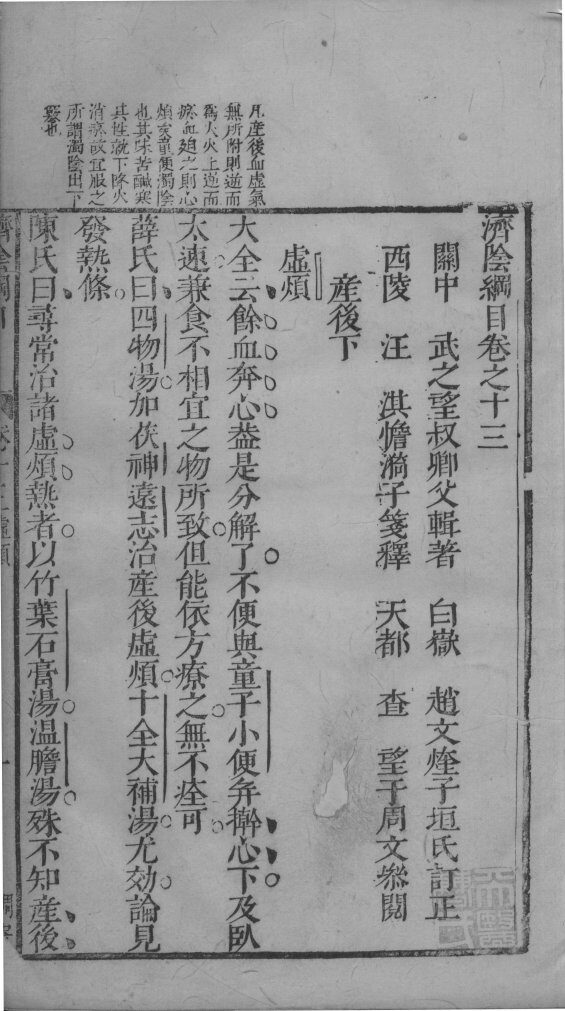 凡產後血虛氣
無所附則逆而
爲火火上逆而
瘀血廹之則心
煩矣童便濁陰
也其味苦鹹寒
其性就下降火
消瘀故宜服之
所謂濁陰出下
竅也
濟陰綱目卷之十三
關中　武之望叔卿父輯著　白嶽　趙文煃子垣氏訂正
西陵　汪　淇憺漪子箋釋　天都　查　望于周文叅閱
產後下
虛煩
大全云餘血奔心葢是分解了不便與童子小便幷擀心下及臥
太速兼食不相宜之物所致但能依方療之無不痊可
薛氏曰四物湯加茯神遠志治產後虛煩十全大補湯尤効論見
發熱條
陳氏曰尋常治諸虛煩熱者以竹葉石膏湯溫膽湯殊不知產後
濟陰綱目　卷十三虛煩　一